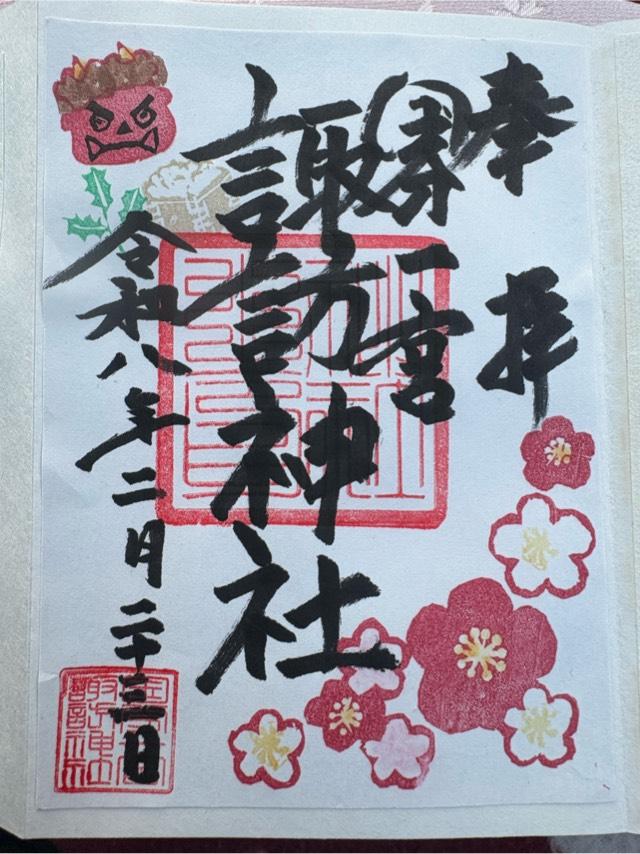 奉拝
一宮
諏訪神社
令和八年二月二十三日